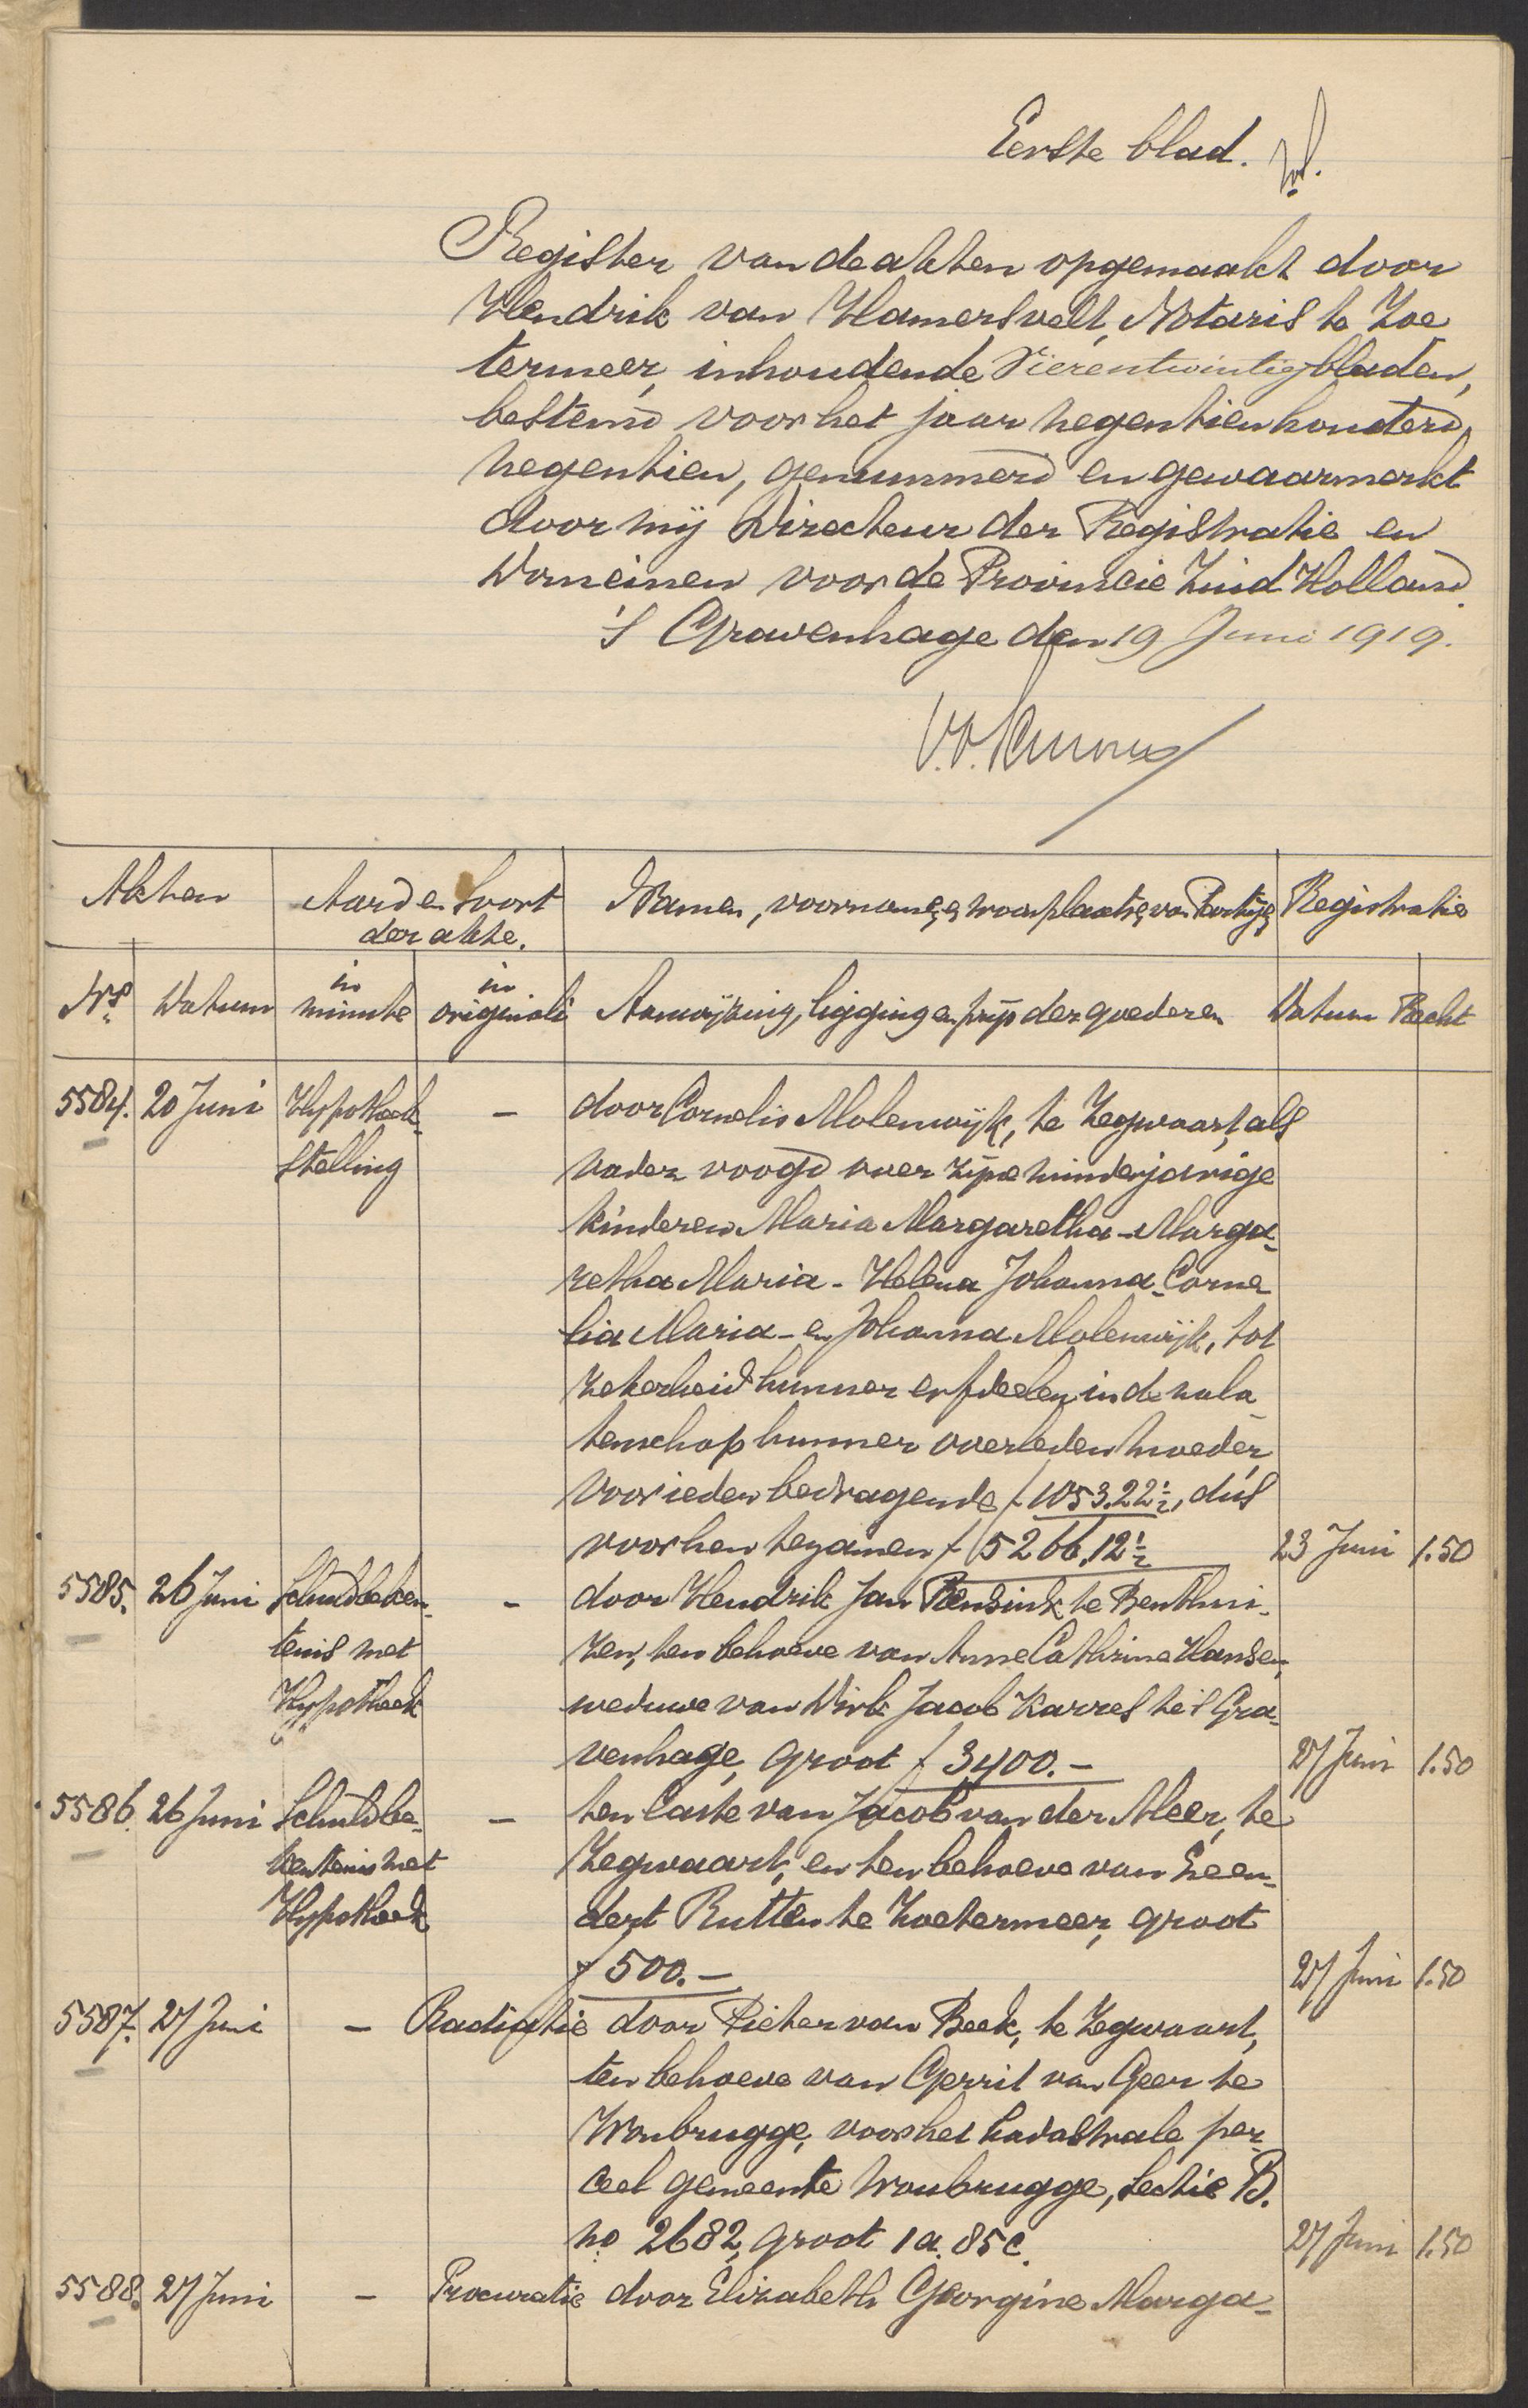 Eerste blad.
Register van de akten opgemaakt door
Hendrik van Hamersvelt, Notaris te Zoe
termeer, inhoudende Vierentwintig bladen,
bestemd voor het jaar negentienhonderd
negentien, genummerd en gewaarmerkt
door mij Directeur der Registratie en
Domeinen voor de Provincie Zuid Holland.
's Gravenhage den 19 Juni 1919.
Akten Aard en Soort Namen, voornamen, woonplaatsen van Partijen Registratie
der akte.
Nrs. Datum in minute in originali Aanwijzing, ligging en prijs der goederen Datum Recht
5584. 20 Juni Hypotheek- – door Cornelis Molenwijk, te Zegwaart, als
stelling vader voogd over zijne minderjarige
kinderen Maria Margaretha - Marga-
retha Maria - Helena Johanna - Corne
lia Maria - en Johanna Molenwijk, tot
zekerheid hunner erfdeelen in de nala-
tenschap hunner overleden moeder,
voor ieder bedragende f 1053.22½, dus
voor hen tezamen f 5266.12½ 23 Juni 1.50
5585. 26 Juni Schuldbeken- - door Hendrik Jan Rensink te Benthui-
tenis met zen, ten behoeve van Anne Cathrine Hansen,
Hypotheek weduwe van Dirk Jacob Karres te 's Gra-
venhage, groot f 3400.- 27 Juni 1.50
5586. 26 Juni Schuldbe- – ten laste van Jacob van der Meer, te
kentenis met Zegwaart, en ten behoeve van Leen-
Hypotheek dert Rutten te Zoetermeer, groot
f 500.- 27 Juni 1.50
5587. 27 Juni – Radiatie door Pieter van Beek, te Zegwaart,
ten behoeve van Gerrit van Geer te
Woubrugge, voor het kadastrale per-
ceel gemeente Woubrugge, Sectie B.
no 2682, groot 1 a. 85 c. 27 Juni 1.50
5588. 27 Juni – Procuratie door Elizabeth Georgine Marga-